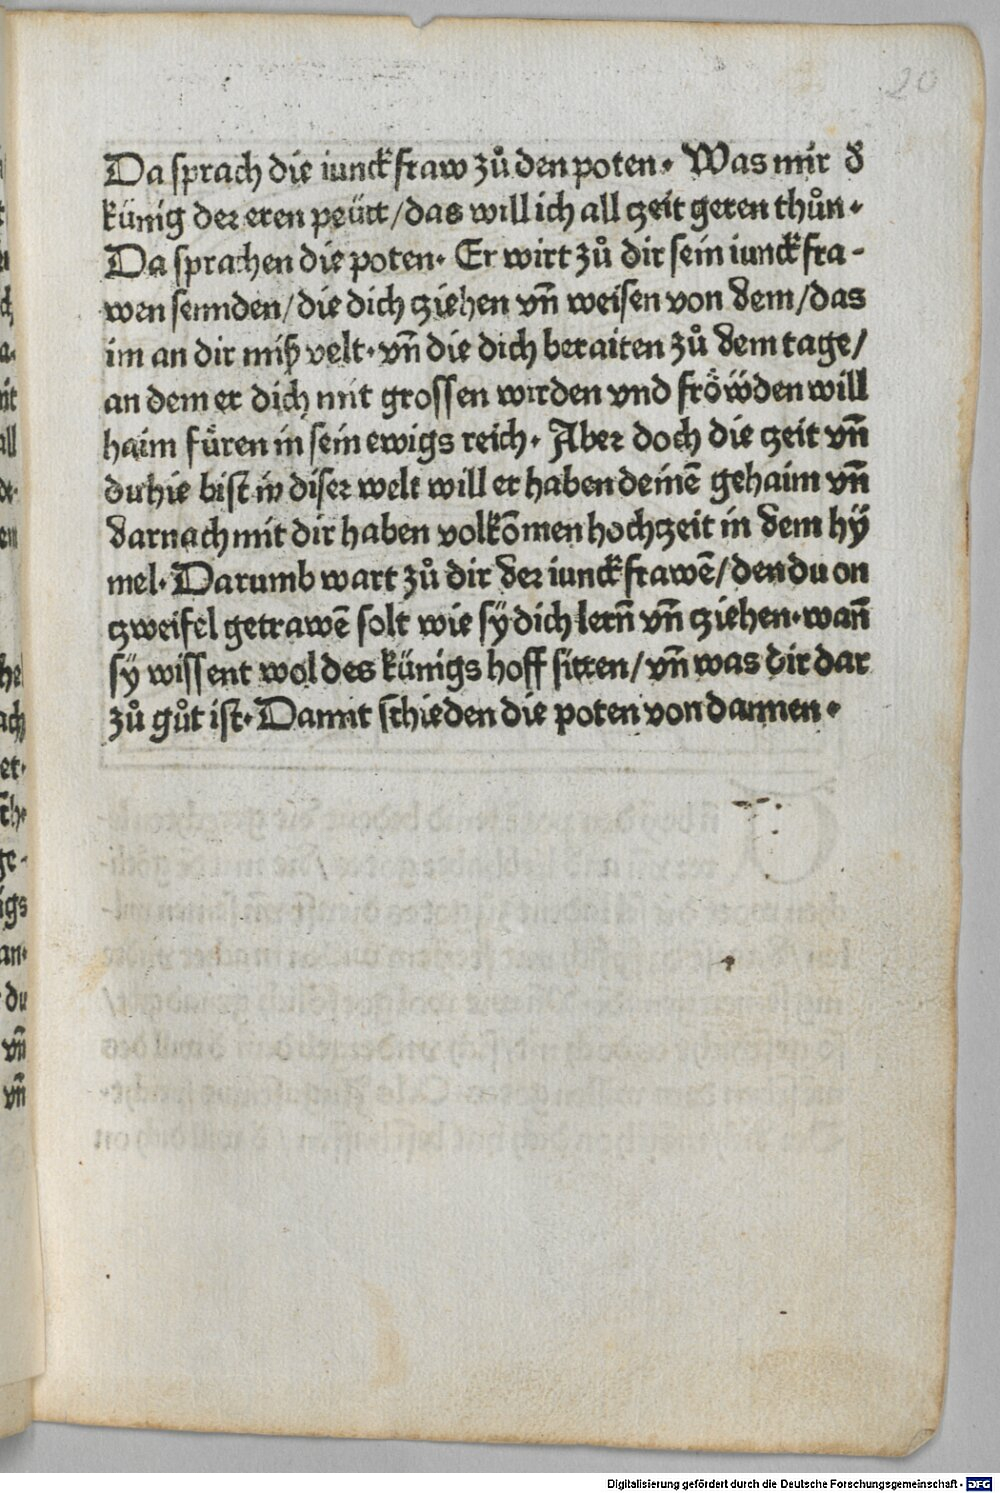 20
Da sprach die iunckfraw zů den poten. Was mir d̕
künig der eren peütt/das will ich all zeit geren thůn.
Da sprachen die poten. Er wirt zů dir sein iunckfra-
wen sennden/die dich ziehen vñ weisen von dem/das
im an dir miß velt. vñ die dich beraiten zů dem tage/
an dem er dich mit grossen wirden vnd frȫẅden will
haim fu̎ren in sein ewigs reich. Aber doch die zeit vñ
du hie bist in diser welt will er haben deinē gehaim vñ
darnach mit dir haben volkōmen hochzeit in dem hÿ
mel. Darumb wart zů dir der iunckfrawē/den du on
zweifel getrawē solt wie sÿ dich lern̄ vñ ziehen. wañ
sÿ wissent wol des künigs hoff sitten/vñ was dir dar
zů gůt ist. Damit schieden die poten von dannen.
Digitalisierung gefördert durch die Deutsche Forschungsgemeinschaft - DFG